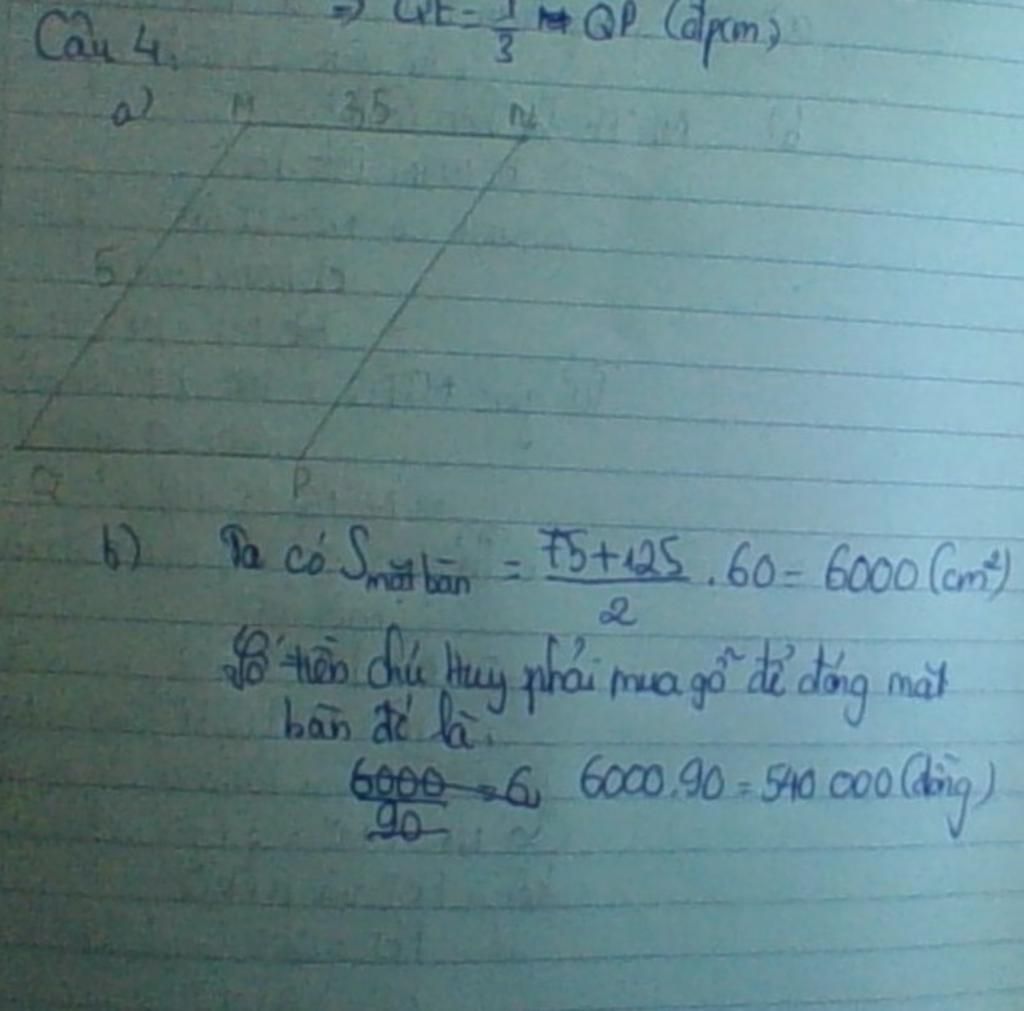 => QE = 1/3 QP (đpcm)
Câu 4.
a)
M 3,5 N
5
Q P
b) Ta có S mặt bàn = (75+125)/2 . 60 = 6000 (cm²)
Số tiền chú Huy phải mua gỗ để đóng mặt
bàn đế là:
6000/90 = 6 6000.90 = 540 000 (đồng)